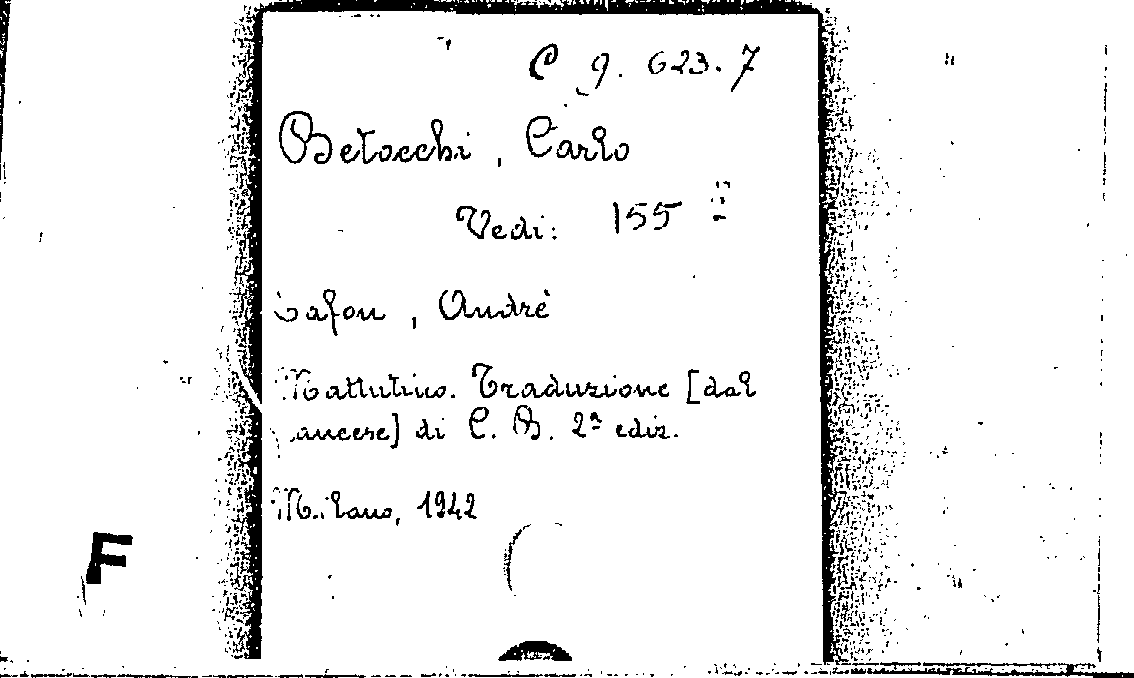 C 9. 623. 7
Betocchi, Carlo
Vedi: 155
Lafon, André
Mattutino. Traduzione [dal
ancese] di C. B. 2ª ediz.
Milano, 1942
F